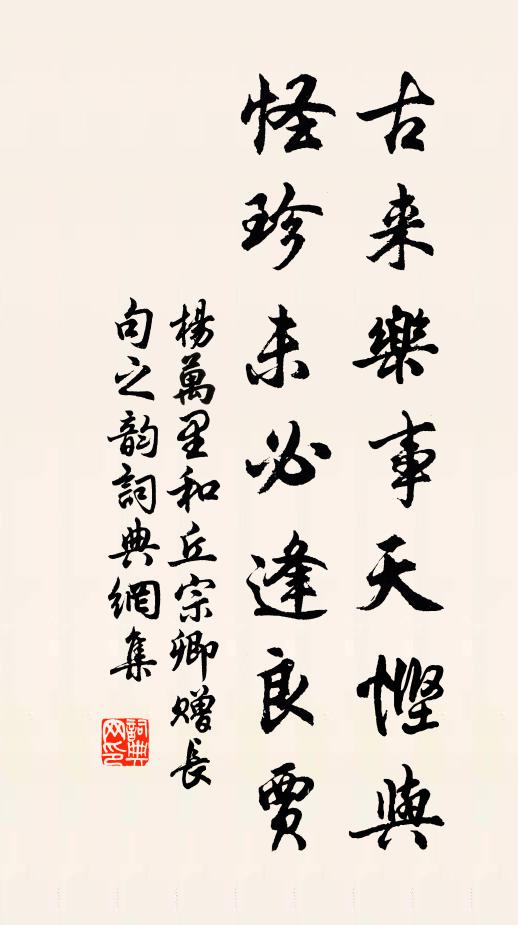 古来樂事天慳與
怪珍未必逢良賈
楊萬里和丘宗卿贈長
句之韵詞典網集
詞典
网印